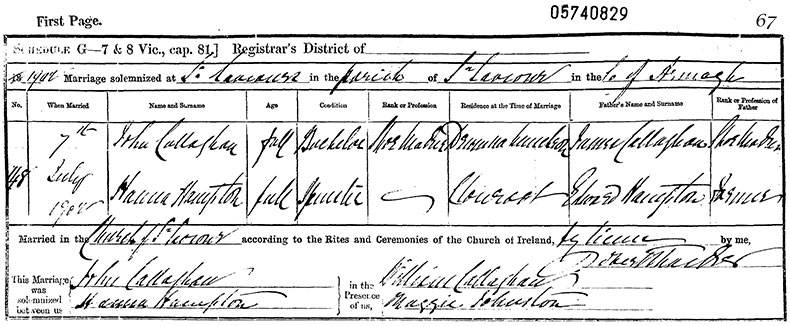 First Page. 05740829 67
SCHEDULE G—7 & 8 Vic., cap. 81.] Registrar's District of
1902 Marriage solemnized at St. Saviours in the parish of St. Saviour in the Co of Armagh
No. When Married Name and Surname Age Condition Rank or Profession Residence at the Time of Marriage Father's Name and Surname Rank or Profession of Father
7th John Callaghan full Bachelor Shoe Maker James Callaghan Shoe Maker
148 July
1902 Hanna Hampton full Spinster Clonroot Edward Hampton Farmer
Married in the Church of St. Saviour according to the Rites and Ceremonies of the Church of Ireland, by license by me,
This Marriage was solemnized between us John Callaghan in the Presence of us, William Callaghan
Hanna Hampton Maggie Johnston